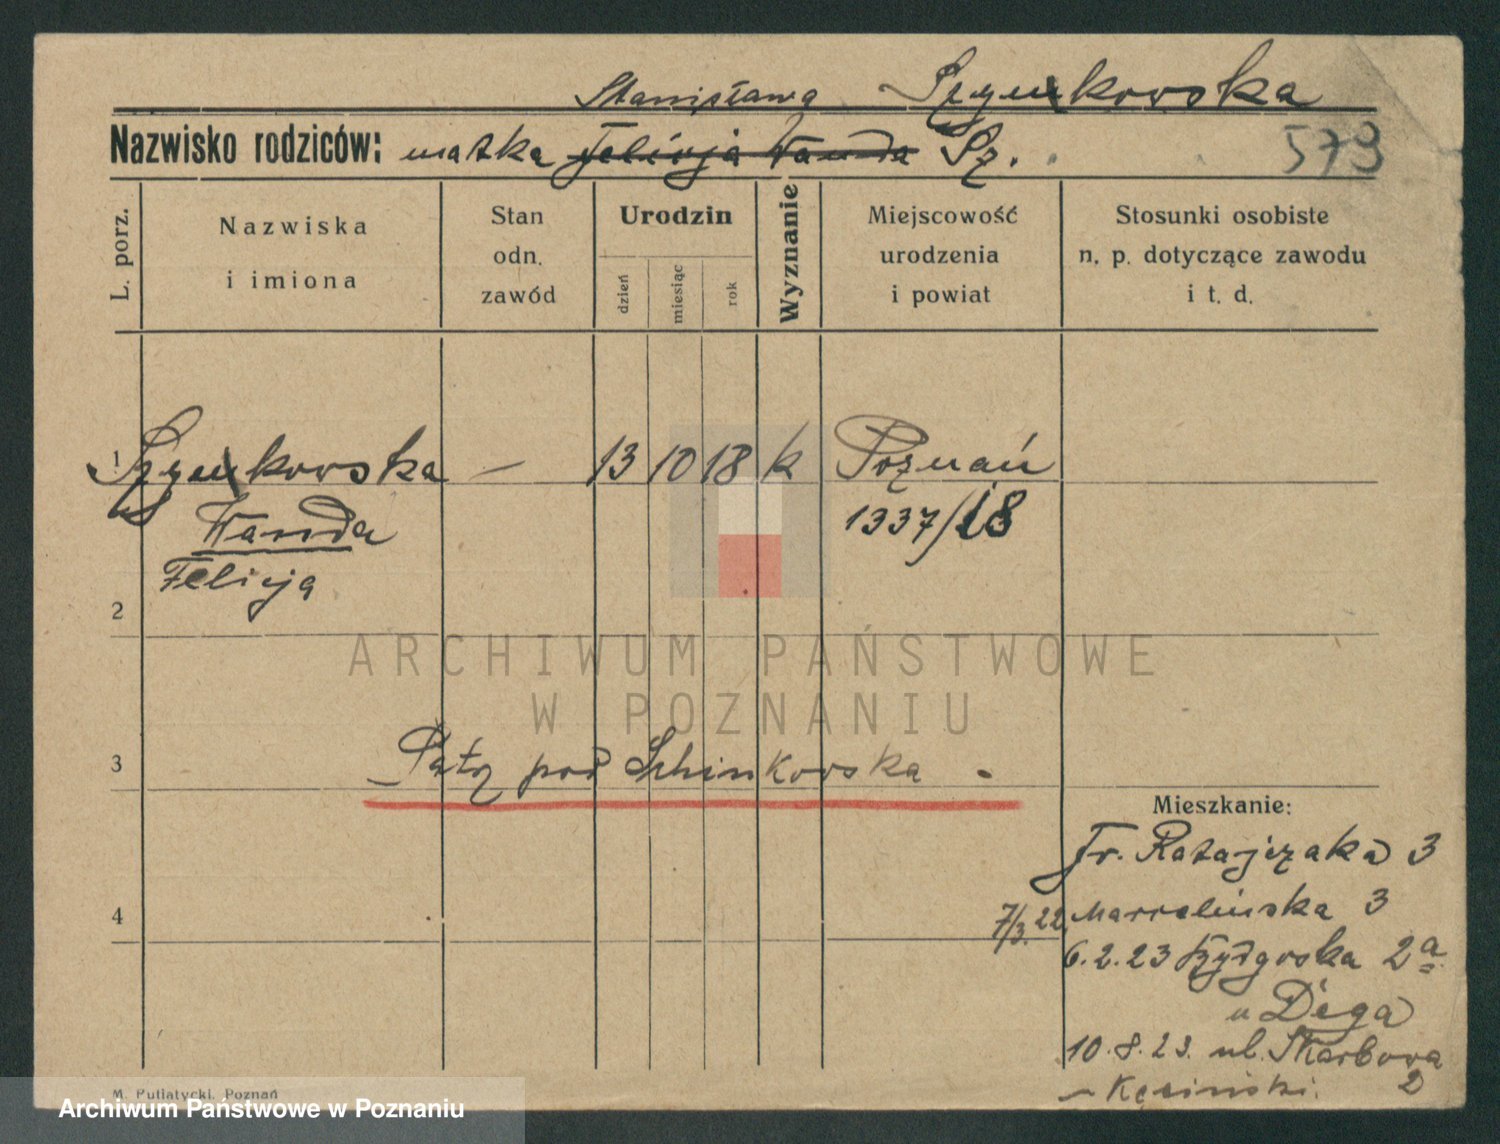 Stanisława Szymkowska
Nazwisko rodziców: matka Felicja Wanda Sz.
579
L. porz.
Nazwiska
i imiona
Stan
odn.
zawód
Urodzin
dzień
miesiąc
rok
Wyznanie
Miejscowość
urodzenia
i powiat
Stosunki osobiste
n. p. dotyczące zawodu
i t. d.
1 Szymkowska — 13 10 18 k Poznań
Wanda 1337/18
Felicja
2
ARCHIWUM PAŃSTWOWE
W POZNANIU
3 Patrz pod Schinkowska .
Mieszkanie:
Fr. Ratajczaka 3
4 7/3. 22. Marcelińska 3
6.2.23 2a
u Dega
10.8.23. ul. Skarbowa
2
M. Putiatycki, Poznań
Archiwum Państwowe w Poznaniu